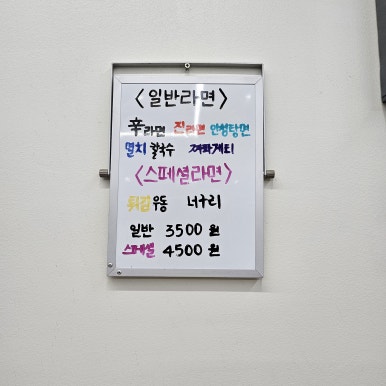 <일반라면>
辛라면 진라면 안성탕면
멸치칼국수 짜파게티
<스페셜라면>
튀김우동 너구리
일반 3500원
스페셜 4500원